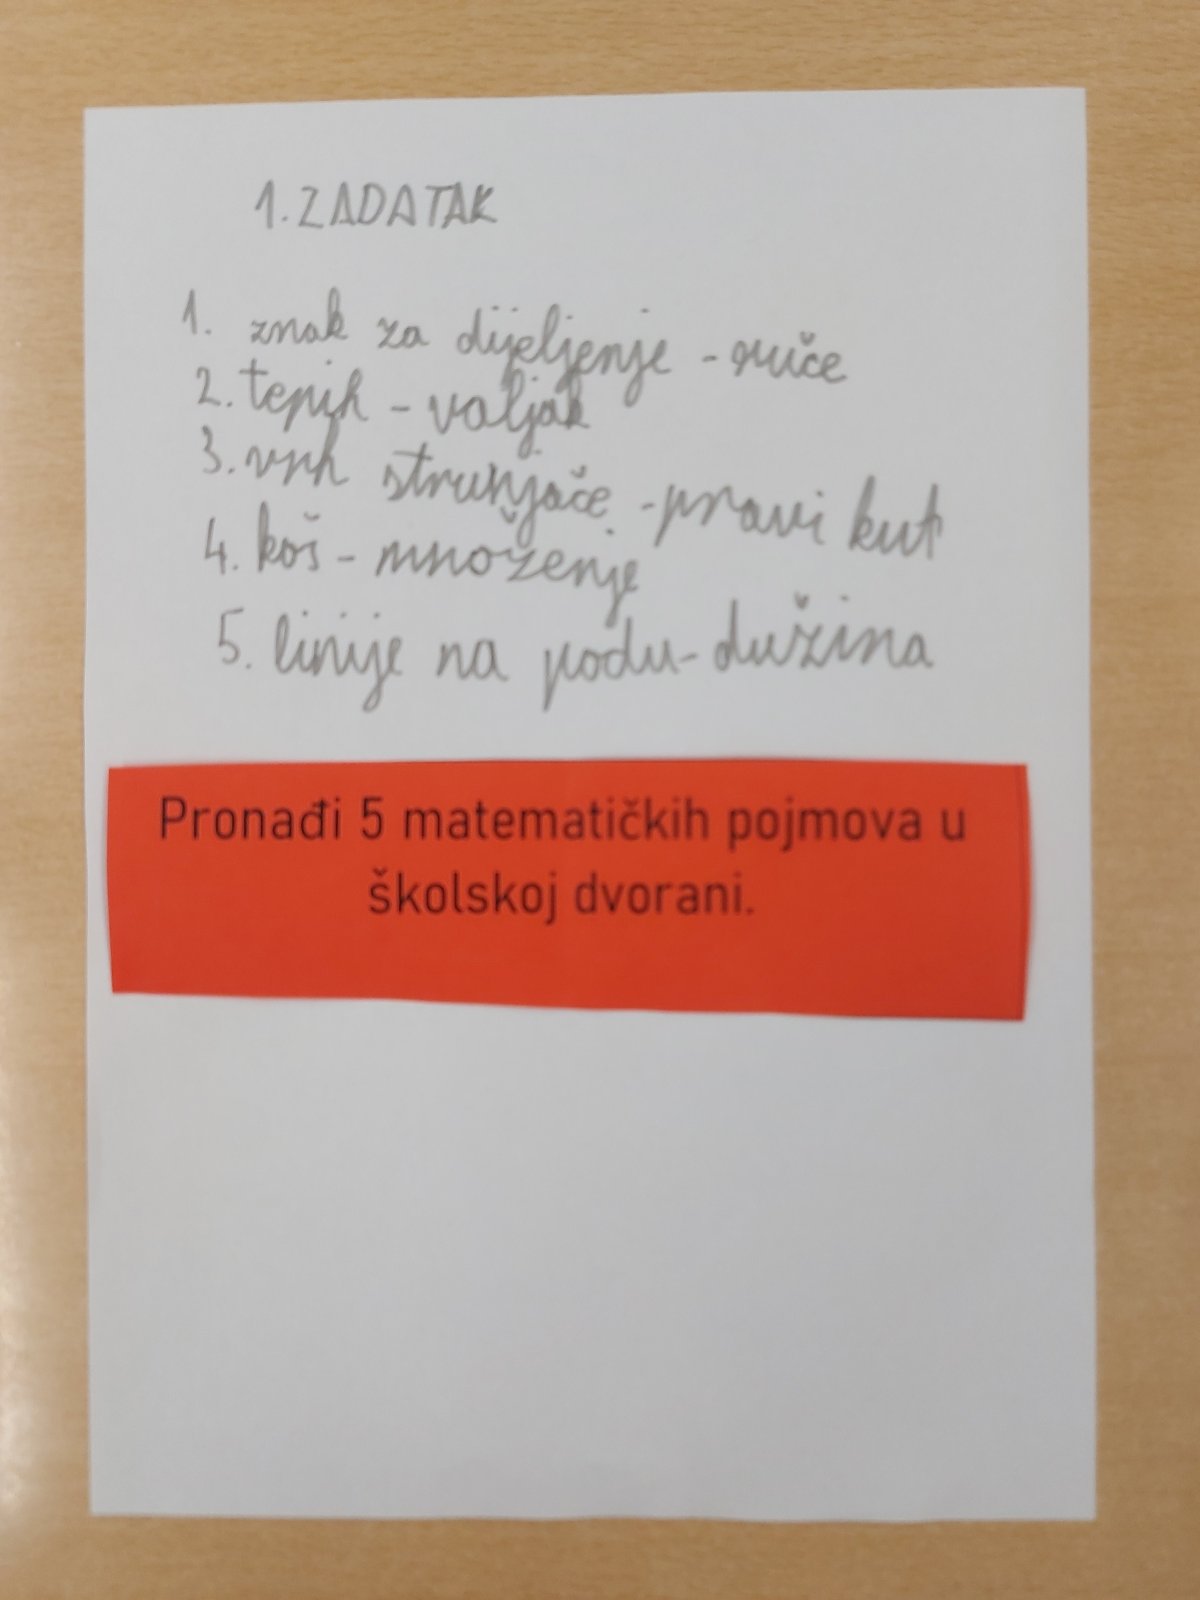 1. ZADATAK
1. znak za dijeljenje - ruče
2. tepih - valjak
3. vrh strunjače - pravi kut
4. koš - množenje
5. linije na podu - dužina
Pronađi 5 matematičkih pojmova u
školskoj dvorani.